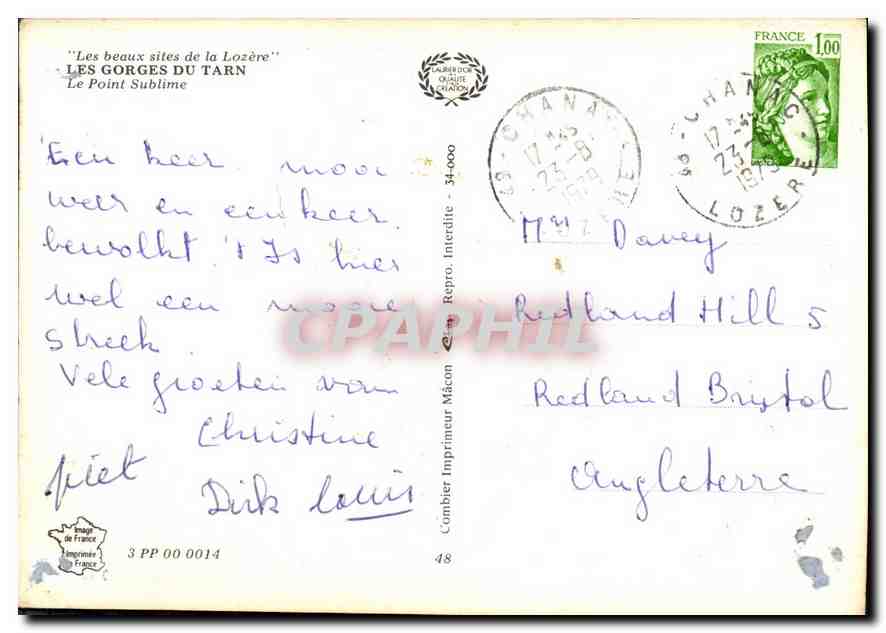 "Les beaux sites de la Lozère"
LES GORGES DU TARN
Le Point Sublime
LAURIER D'OR
DE
QUALITÉ
CREATION
FRANCE 1,00
CHANAC
17
23-8
1979
48
CHANAC
17
23
1979
48
LOZERE
Een keer mooi
weer en een keer
bewolkt 't Is hier
wel een mooie
streek
Vele groeten van
Christine
piet
Dirk Louis
Mrs Davey
Redland Hill 5
Redland Bristol
Angleterre
Combier Imprimeur Mâcon Repro. Interdite - 34-000
CPAPHIL
Image
de France
Imprimée
France
3 PP 00 0014
48